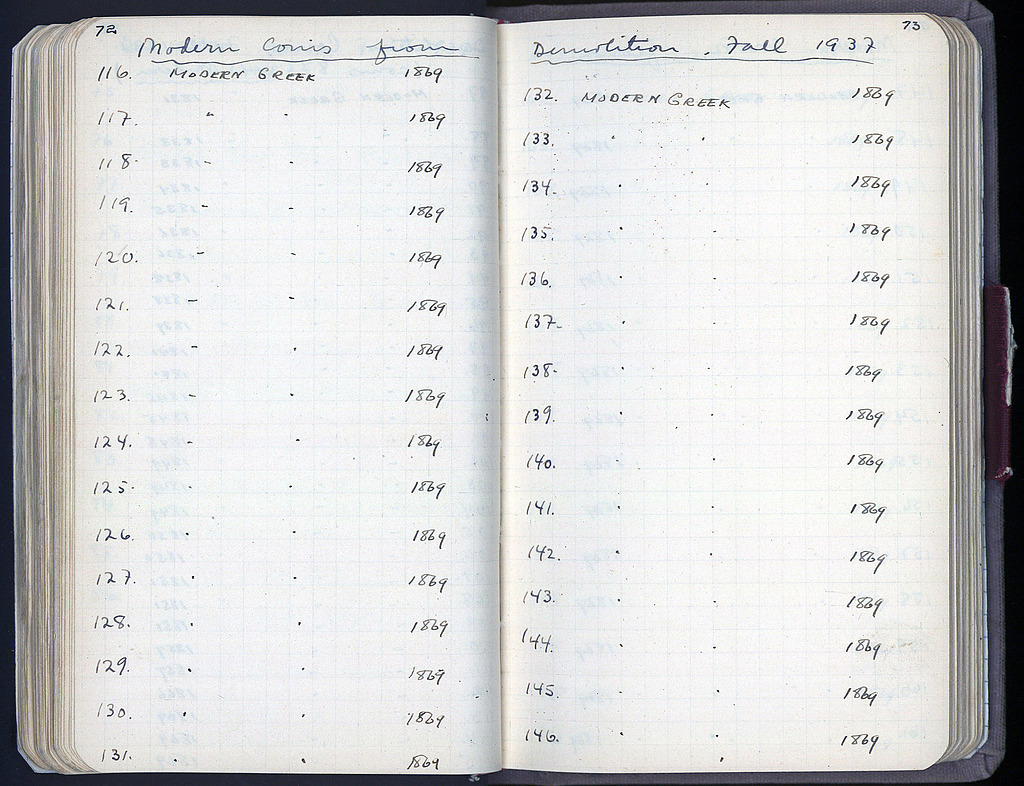 72
Modern Coins from
116. MODERN GREEK 1869
117. " " 1869
118. " " 1869
119. " " 1869
120. " " 1869
121. " " 1869
122. " " 1869
123. " " 1869
124. " " 1869
125. " " 1869
126. " " 1869
127. " " 1869
128. " " 1869
129. " " 1869
130. " " 1869
131. " " 1869
73
Demolition. Fall 1937
132. MODERN GREEK 1869
133. " " 1869
134. " " 1869
135. " " 1869
136. " " 1869
137. " " 1869
138. " " 1869
139. " " 1869
140. " " 1869
141. " " 1869
142. " " 1869
143. " " 1869
144. " " 1869
145. " " 1869
146. " " 1869